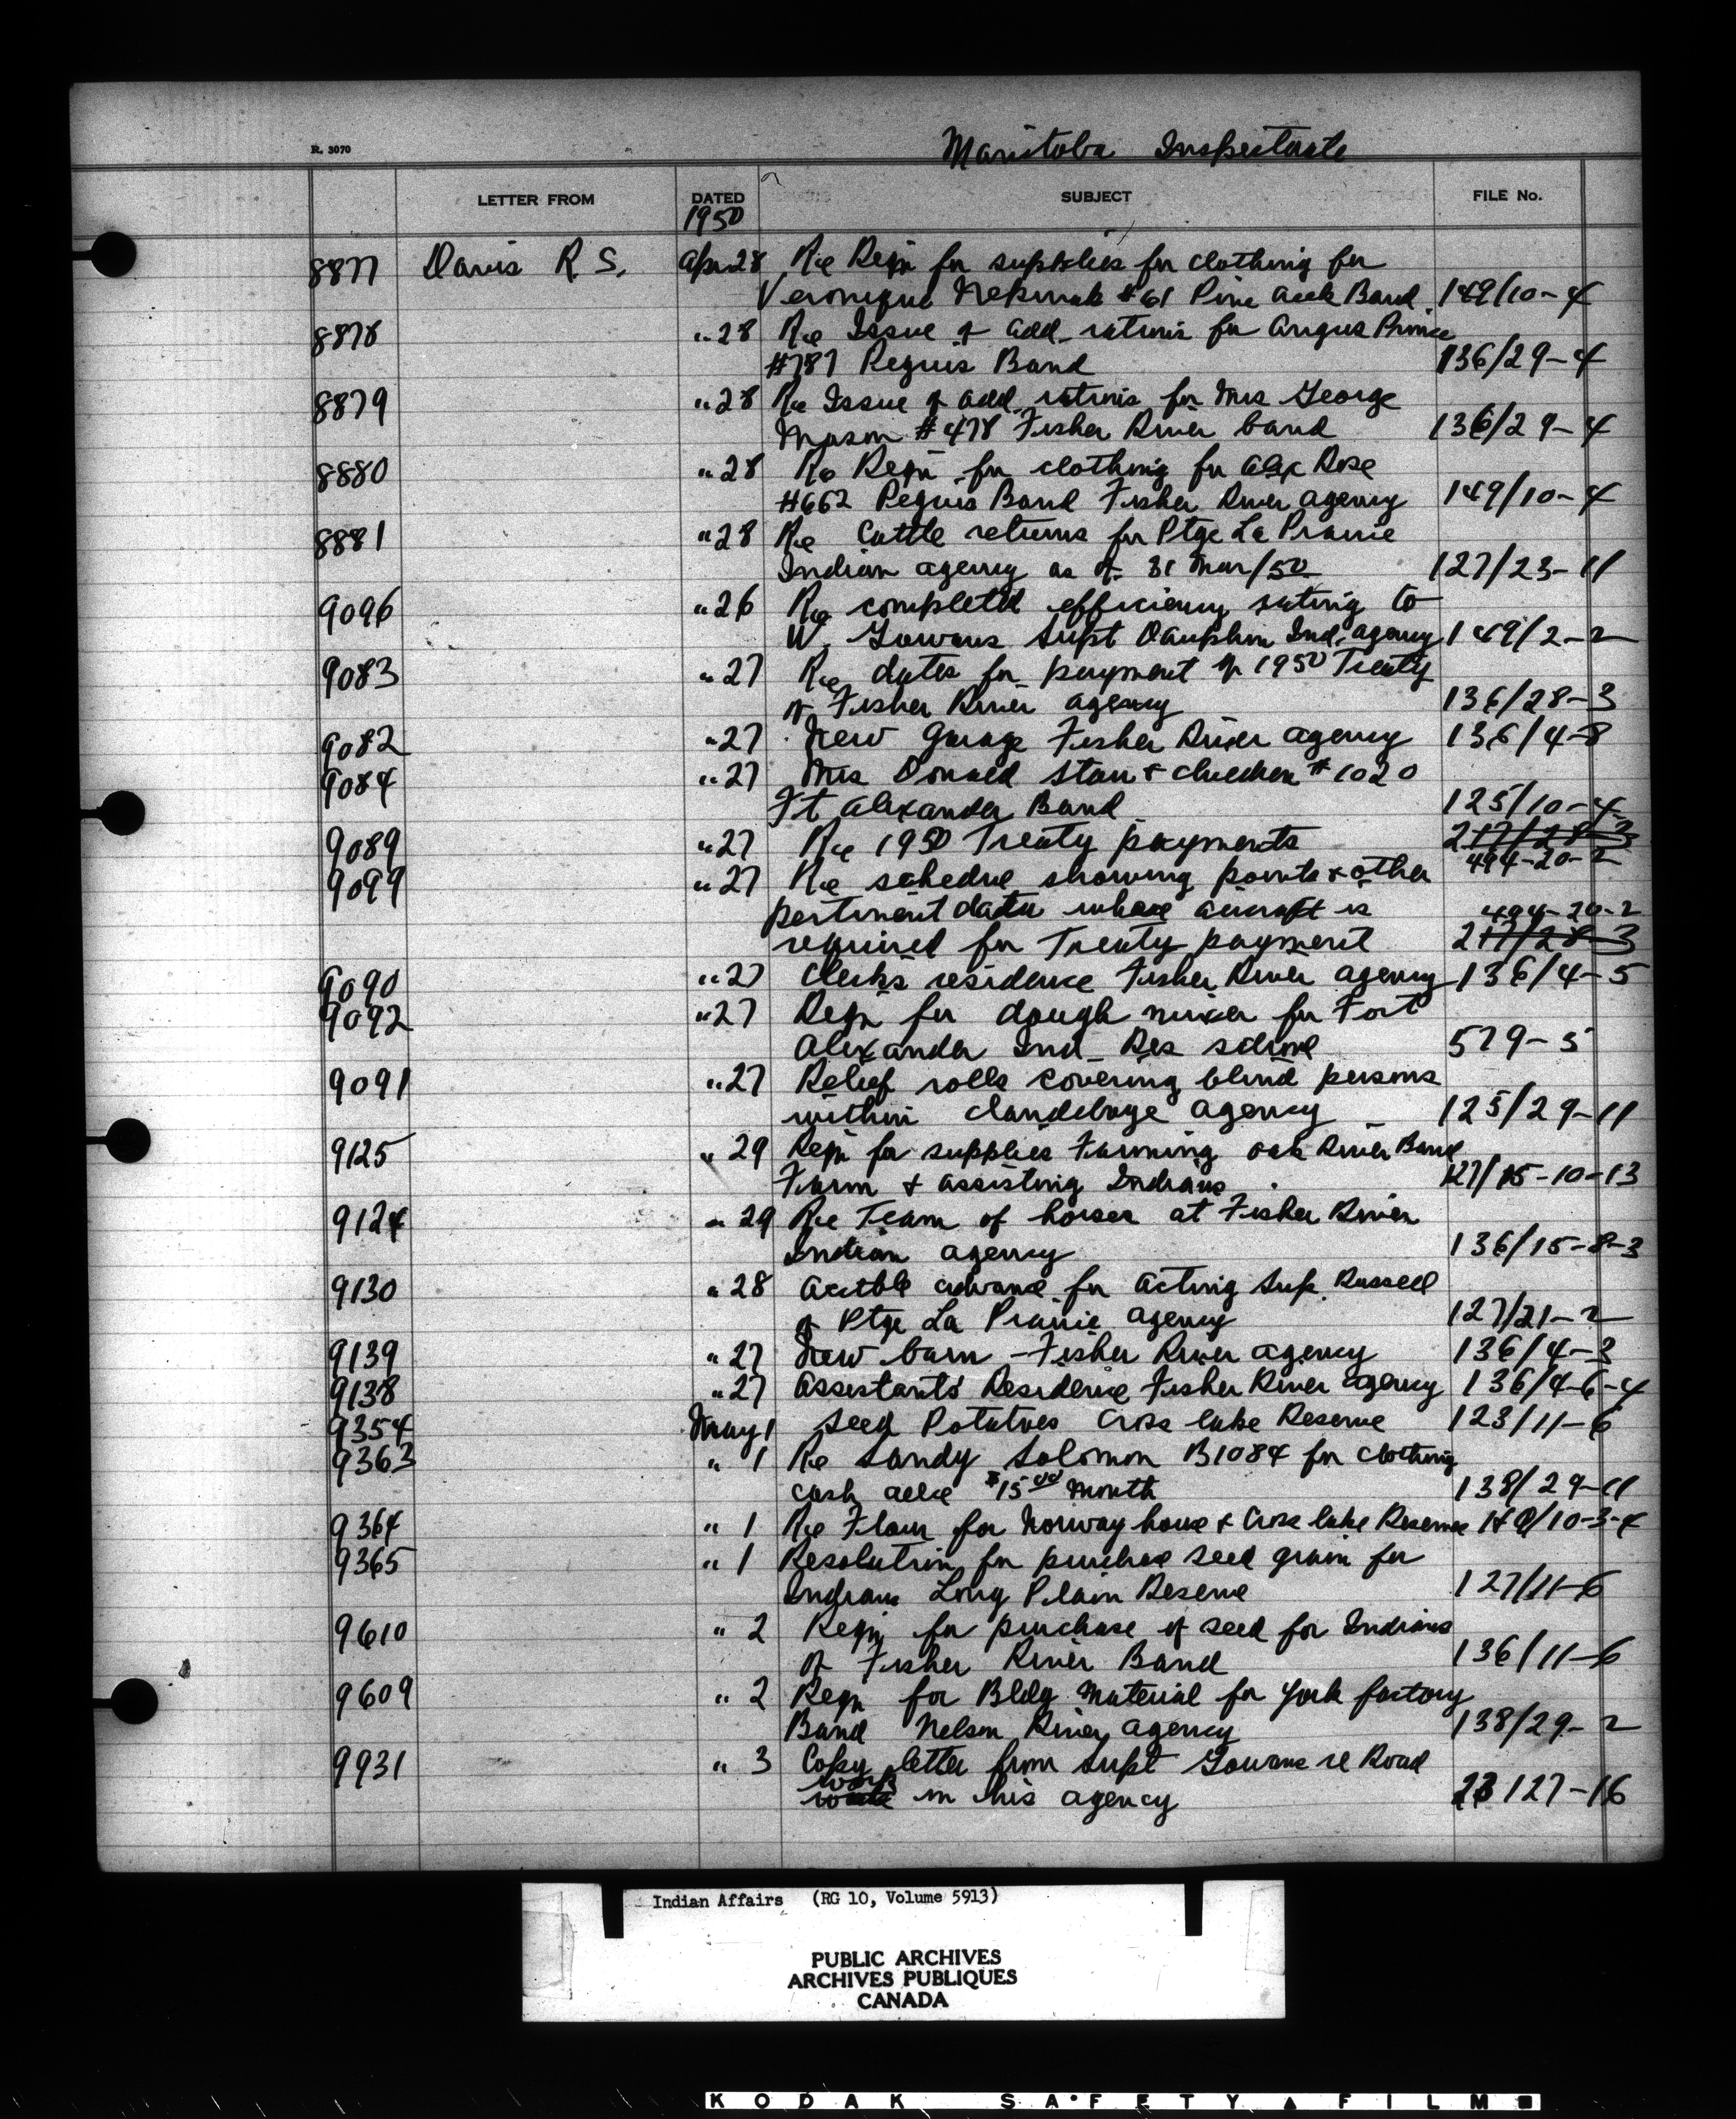 Manitoba Inspectorate
R. 3070
LETTER FROM DATED SUBJECT FILE No.
1950
8877 Davis R S. Apr 28 Re Reqn for supplies for clothing for
Veronique Nepinak #61 Pine Creek Band 149/10-4
8878 " 28 Re Issue of add. rations for Angus Prince
#787 Peguis Band 136/29-4
8879 " 28 Re Issue of add. rations for Mrs George
Mason #478 Fisher River band 136/29-4
8880 " 28 Re Reqn for clothing for Alex Rose
#662 Peguis Band Fisher River Agency 149/10-4
8881 " 28 Re Cattle returns for Ptge La Prairie
Indian Agency as of 31 Mar/50 127/23-11
9096 " 26 Re completed efficiency rating to
W. Gowans Supt Dauphin Ind. Agency 149/2-2
9083 " 27 Re dates for payment of 1950 Treaty
of Fisher River Agency 136/28-3
9082 " 27 New Garage Fisher River Agency 136/4-8
9084 " 27 Mrs Donald Starr & children #1020
Ft Alexander Band 125/10-4
9089 " 27 Re 1950 Treaty payments 217/28-3
494-20-2
9099 " 27 Re schedule showing points & other
pertinent data where aircraft is 494-20-2
required for Treaty payment 217/28-3
9090 " 27 Clerks residence Fisher River Agency 136/4-5
9092 " 27 Reqn for dough mixer for Fort
Alexander Ind. Res School 579-5
9091 " 27 Relief rolls covering blind persons
within Clandeboye Agency 125/29-11
9125 " 29 Reqn for supplies Farming Oak River Band
Farm & assisting Indians 127/15-10-13
9124 " 29 Re Team of horses at Fisher River
Indian Agency 136/15-8-3
9130 " 28 Acctble advance for Acting Sup. Russell
of Ptge La Prairie Agency 127/21-2
9139 " 27 New barn - Fisher River Agency 136/4-3
9138 " 27 Assistants' Residence Fisher River Agency 136/4-6-4
9354 May 1 Seed Potatoes Cross lake Reserve 123/11-6
9363 " 1 Re Sandy Solomon B1084 for clothing
cash $15 00 month 138/29-11
9364 " 1 Re Flour for Norway house & Cross lake Reserve /10-3-4
9365 " 1 Resolution for purchase seed grain for
Indians Long Plain Reserve 127/11-6
9610 " 2 Reqn for purchase of seed for Indians
of Fisher River Band 136/11-6
9609 " 2 Reqn for Bldg Material for York factory
Band Nelson River Agency 138/29-2
9931 " 3 Copy letter from Supt Gowans re Road
work
in his agency 127-16
Indian Affairs (RG 10, Volume 5913)
PUBLIC ARCHIVES
ARCHIVES PUBLIQUES
CANADA
KODAK SAFETY FILM